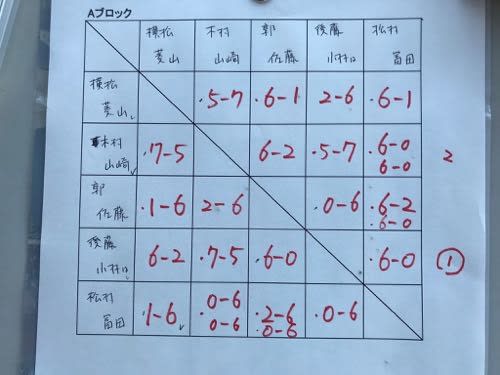 Aブロック
横松 木村 郭 後藤 松村
菱山 山崎 佐藤 小林 冨田
横松 .5-7 .6-1 2-6 .6-1
菱山
木村 .7-5 6-2 .5-7 .6-0 2
山崎 6-0
郭 .1-6 2-6 .0-6 .6-2
佐藤 .6-0
後藤 6-2 .7-5 .6-0 .6-0 ①
小林
松村 .1-6 .0-6 .2-6 .0-6
冨田 .0-6 .0-6